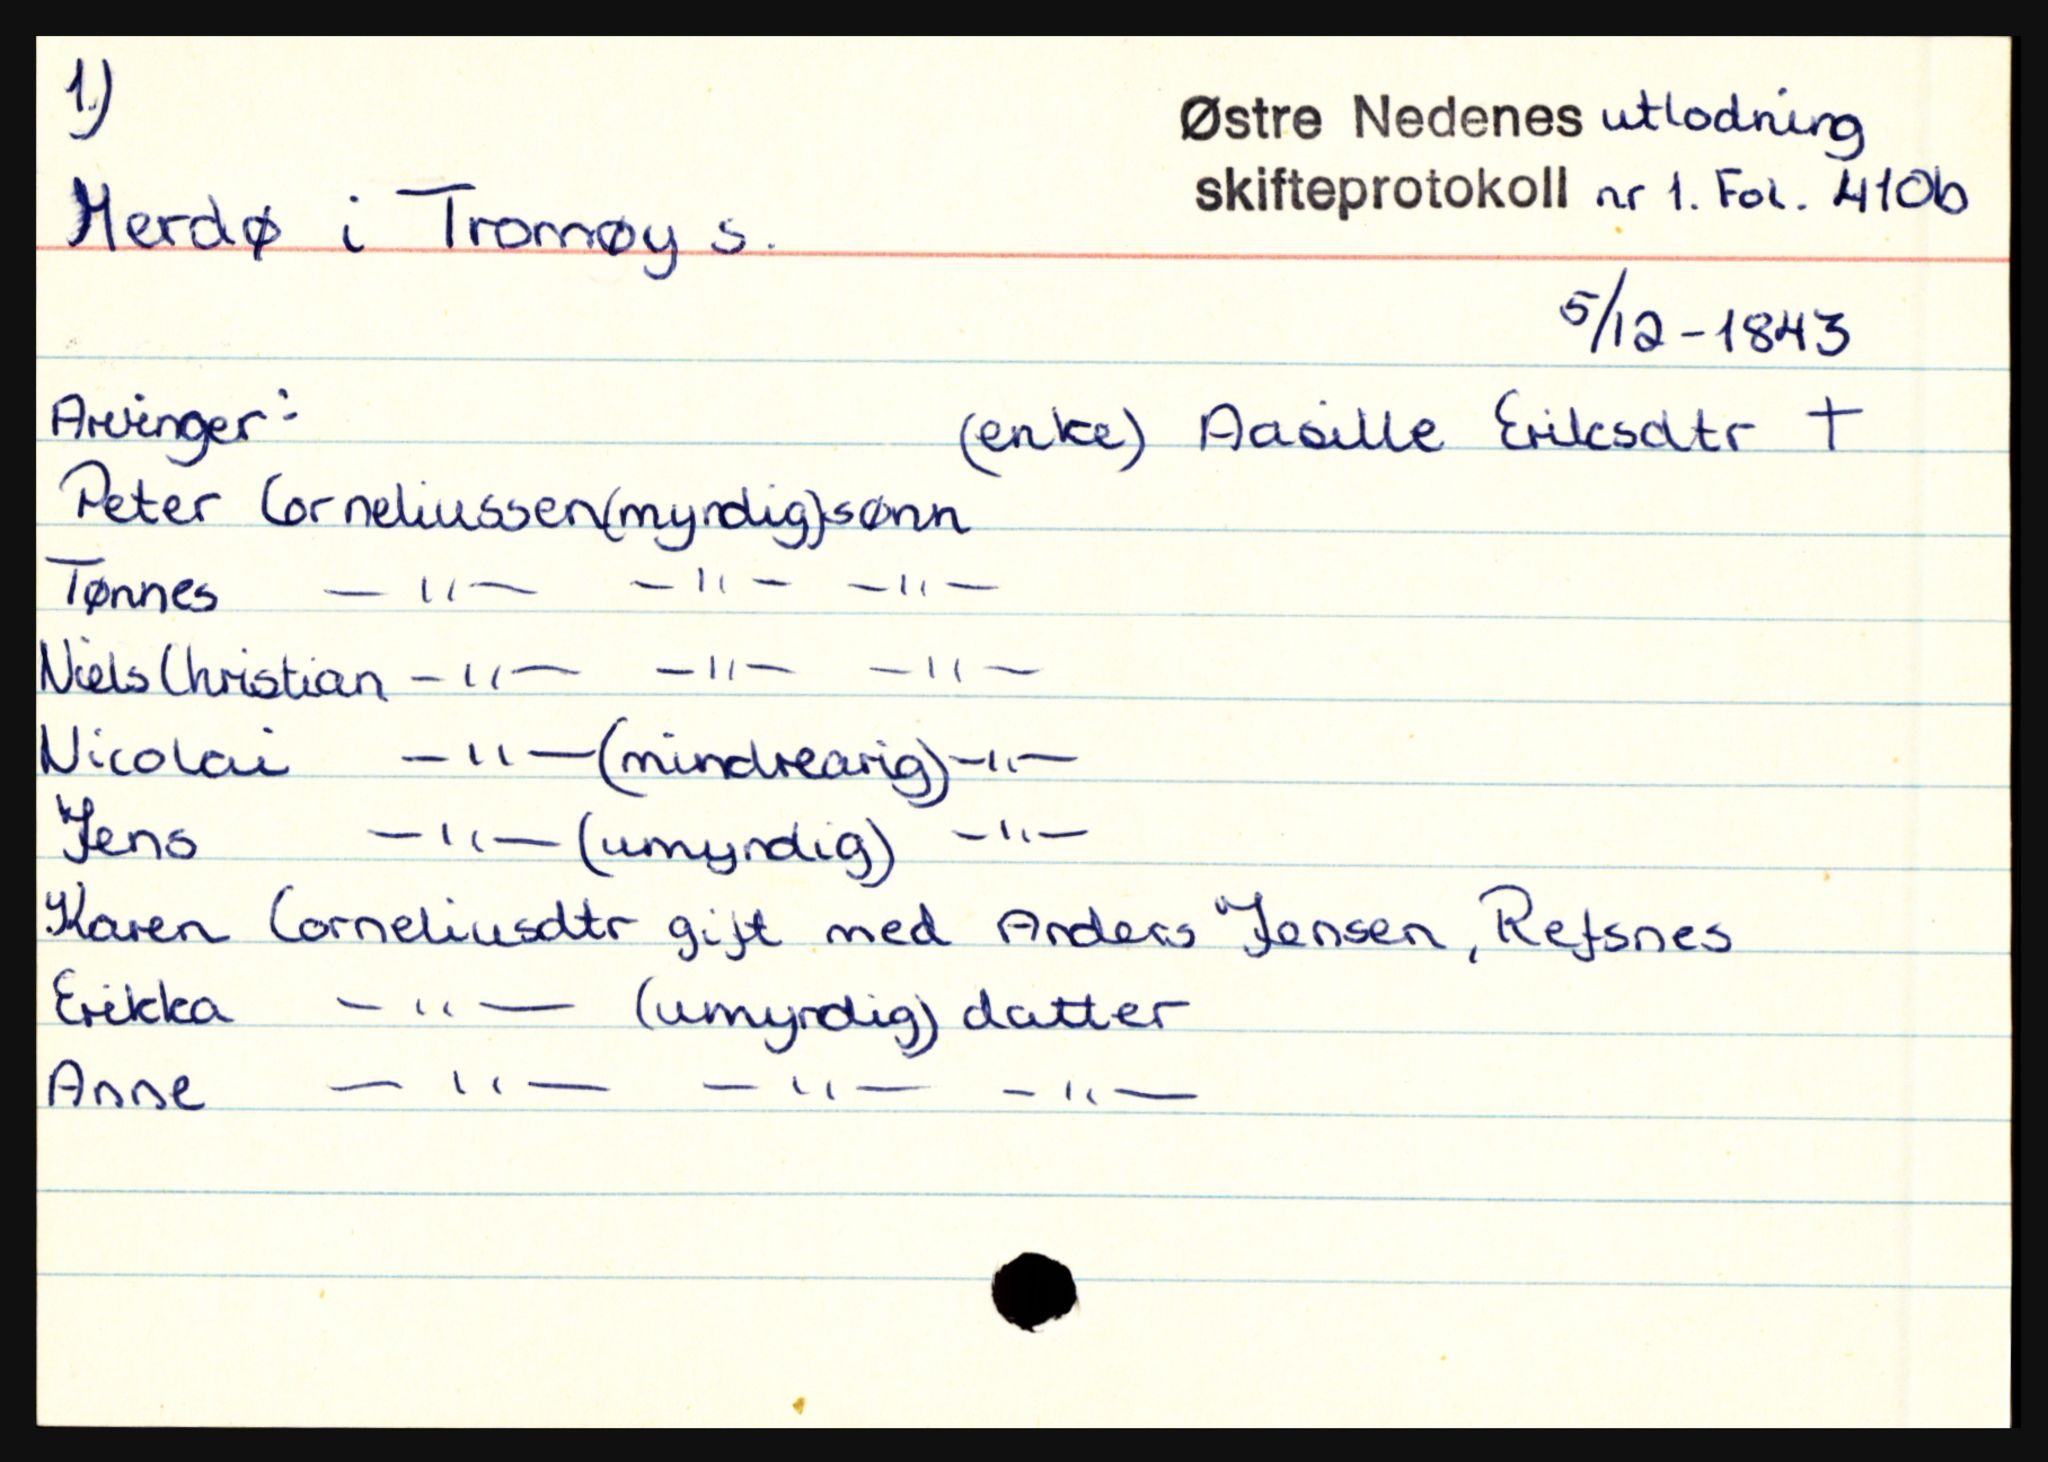 1)
Østre Nedenes utlodning
skifteprotokoll nr 1. Fol. 410b
Merdø i Tromøy s.
5/12-1843
Arvinger:
(enke) Aasille Eriksdtr †
Peter Corneliussen (myndig) sønn
Tønnes —"— —"— —"—
Niels Christian —"— —"— —"—
Nicolai —"— (mindrearig) —"—
Jens —"— (umyndig) —"—
Karen Corneliusdtr gift med Anders Jensen, Refsnes
Erikka —"— (umyndig) datter
Anne —"— —"— —"—